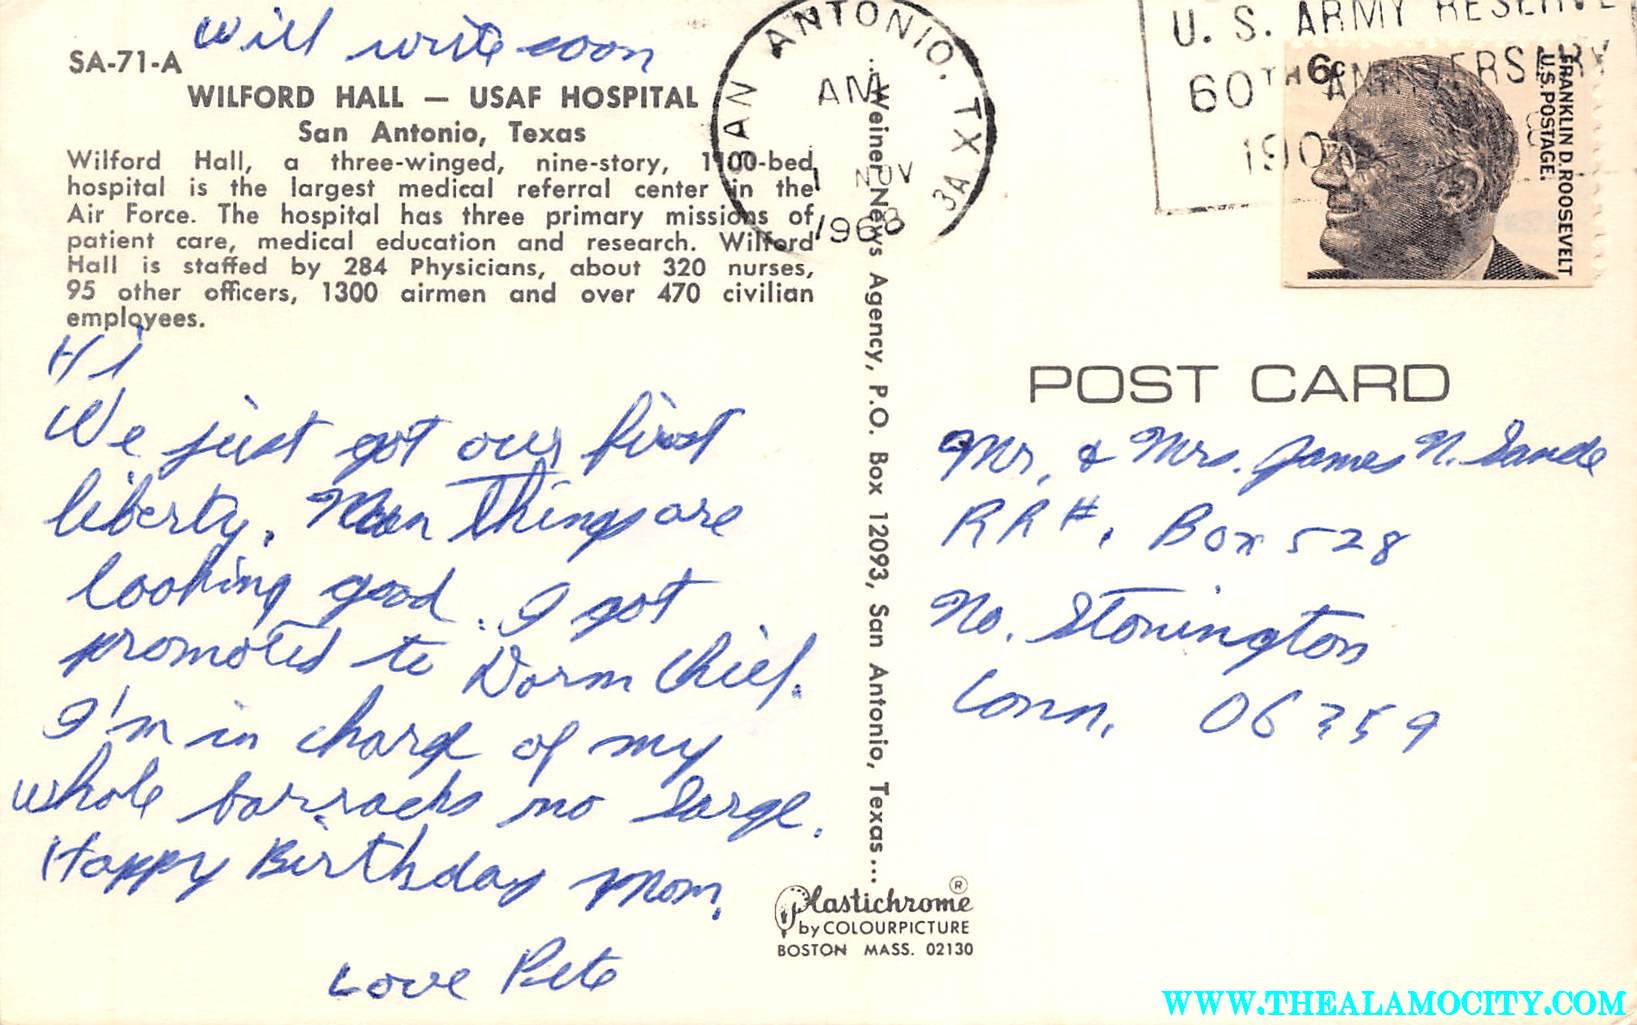 Will write soon
SA-71-A
WILFORD HALL — USAF HOSPITAL
San Antonio, Texas
Wilford Hall, a three-winged, nine-story, 1100-bed
hospital is the largest medical referral center in the
Air Force. The hospital has three primary missions of
patient care, medical education and research. Wilford
Hall is staffed by 284 Physicians, about 320 nurses,
95 other officers, 1300 airmen and over 470 civilian
employees.
Hi
We just got our first
liberty. Man Things are
looking good. I got
promoted to Dorm Chief.
I'm in charge of my
whole barracks no Sarge.
Happy Birthday Mom.
Love Pete
..Weiner News Agency, P.O. Box 12093, San Antonio, Texas...
Plastichrome ®
by COLOURPICTURE
BOSTON MASS. 02130
SAN ANTONIO, TX
AM
1 NOV
1968
U. S. ARMY RESERVE
60TH ANNIVERSARY
6c
FRANKLIN D. ROOSEVELT
U.S. POSTAGE.
POST CARD
Mr. & Mrs. James N. Sande
RR#, Box 528
No. Stonington
Conn. 06359
WWW.THEALAMOCITY.COM